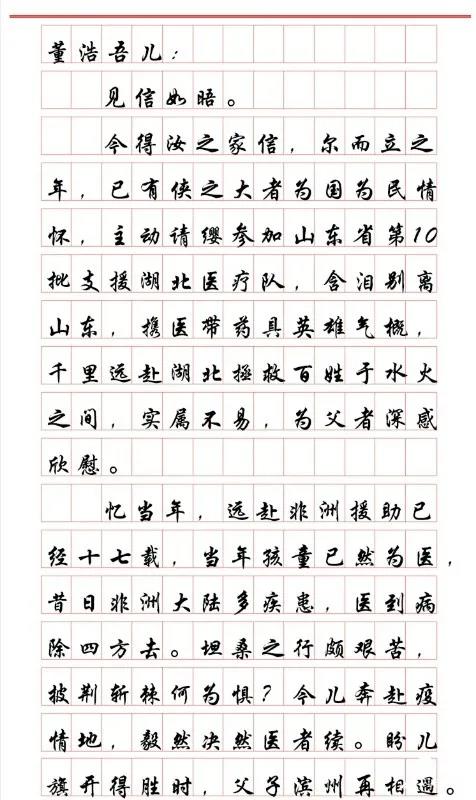 董浩吾儿：
见信如晤。
今得汝之家信，尔而立之
年，已有侠之大者为国为民情
怀，主动请缨参加山东省第10
批支援湖北医疗队，含泪别离
山东，携医带药具英雄气概，
千里远赴湖北拯救百姓于水火
之间，实属不易，为父者深感
欣慰。
忆当年，远赴非洲援助已
经十七载，当年孩童已然为医，
昔日非洲大陆多疾患，医到病
除四方去。坦桑之行颇艰苦，
披荆斩棘何为惧？今儿奔赴疫
情地，毅然决然医者续。盼儿
旗开得胜时，父子滨州再相遇。